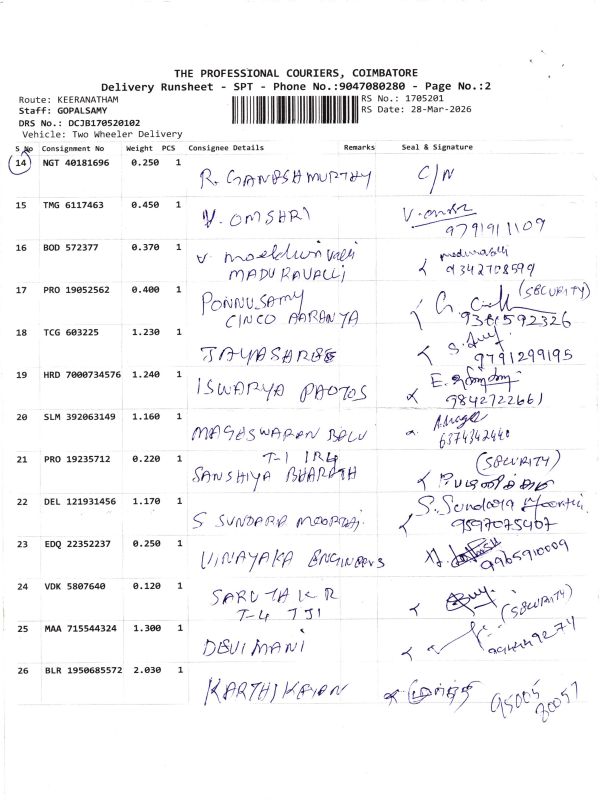 THE PROFESSIONAL COURIERS, COIMBATORE
Delivery Runsheet - SPT - Phone No.:9047080280 - Page No.:2
Route: KEERANATHAM
RS No.: 1705201
Staff: GOPALSAMY
RS Date: 28-Mar-2026
DRS No.: DCJB170520102
Vehicle: Two Wheeler Delivery
S No Consignment No Weight PCS Consignee Details Remarks Seal & Signature
14 NGT 40181696 0.250 1
R. GANESHMURTHY C/N
15 TMG 6117463 0.450 1
V. OMSHRI
9791911109
16 BOD 572377 0.370 1
MADURAVALLI 9342708599
17 PRO 19052562 0.400 1
PONNUSAMY (SECURITY)
CINCO AARANYA 9361592326
18 TCG 603225 1.230 1
JAYASHREE 9791299195
19 HRD 7000734576 1.240 1
ISWARYA PHOTOS 9842722661
20 SLM 392063149 1.160 1
MAGESWARAN BALU 6374342440
21 PRO 19235712 0.220 1
T-1 (SECURITY)
SANSHIYA BHARATH
22 DEL 121931456 1.170 1
S SUNDARA MOORTHI S. Sundara Moorthi
9597075407
23 EDQ 22352237 0.250 1
VINAYAKA ENGINEERS 9965910009
24 VDK 5807640 0.120 1
T-4 (SECURITY)
25 MAA 715544324 1.300 1
DEVIMANI
26 BLR 1950685572 2.030 1
KARTHIKAYAN 95005